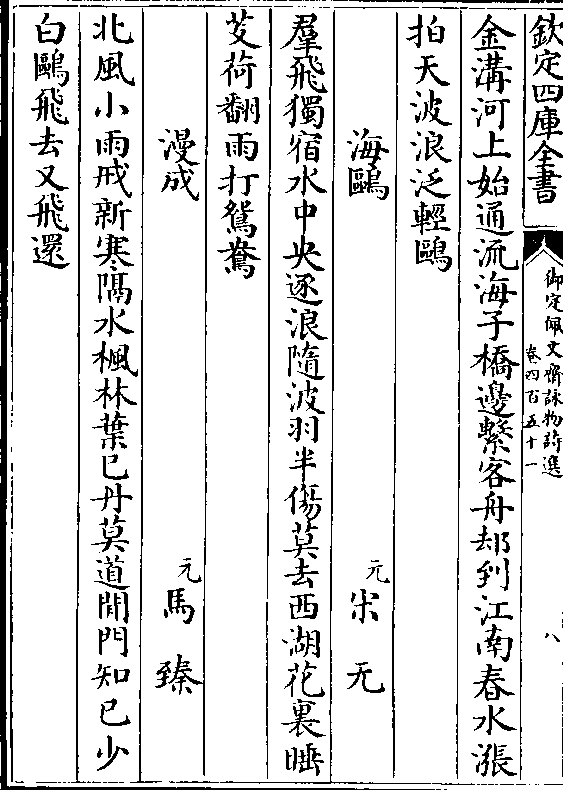 欽定四庫全書
御定佩文齋詠物詩選
卷四百五十一
八
金溝河上始通流海子橋邊繫客舟却到江南春水漲
拍天波浪泛輕鷗
海鷗
元
宋无
羣飛獨宿水中央逐浪隨波羽半傷莫去西湖花裏睡
芰荷翻雨打鴛鴦
漫成
元
馬臻
北風小雨戒新寒隔水楓林葉已丹莫道閉門知已少
白鷗飛去又飛還